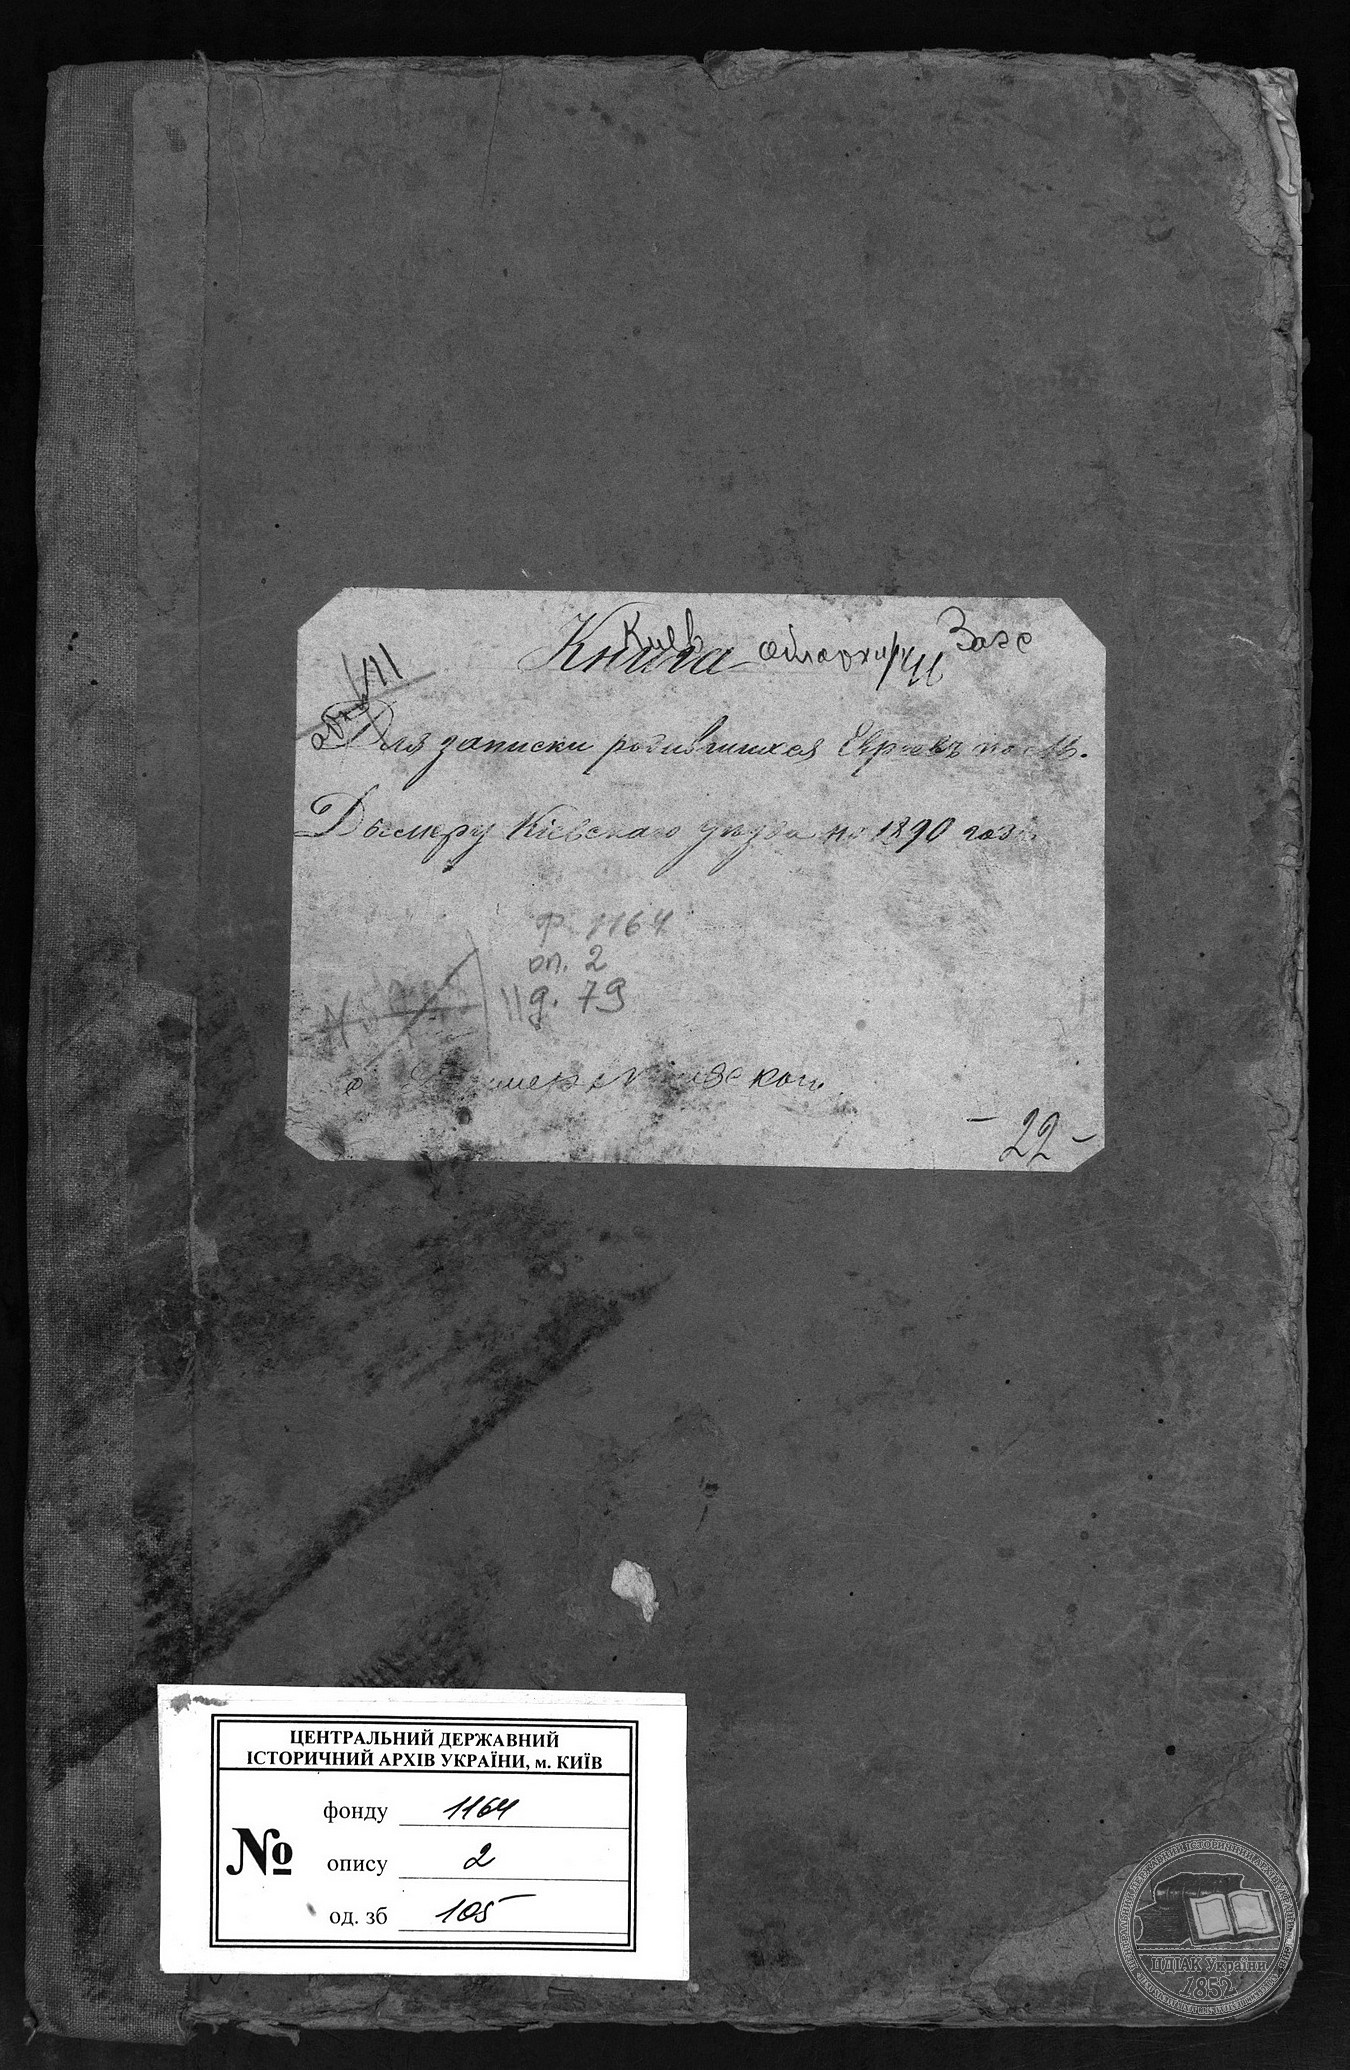 Киев облархив Загс
Книга
VII
Для записки родившихся Евреевъ по м.
Дымеру Кіевскаго уѣзда на 1890 годъ
ф. 1164
оп. 2
д. 79
- 22 -
ЦЕНТРАЛЬНИЙ ДЕРЖАВНИЙ
ІСТОРИЧНИЙ АРХІВ УКРАЇНИ, м. КИЇВ
№
фонду 1164
опису 2
од. зб 105
ЦДІАК України
1852